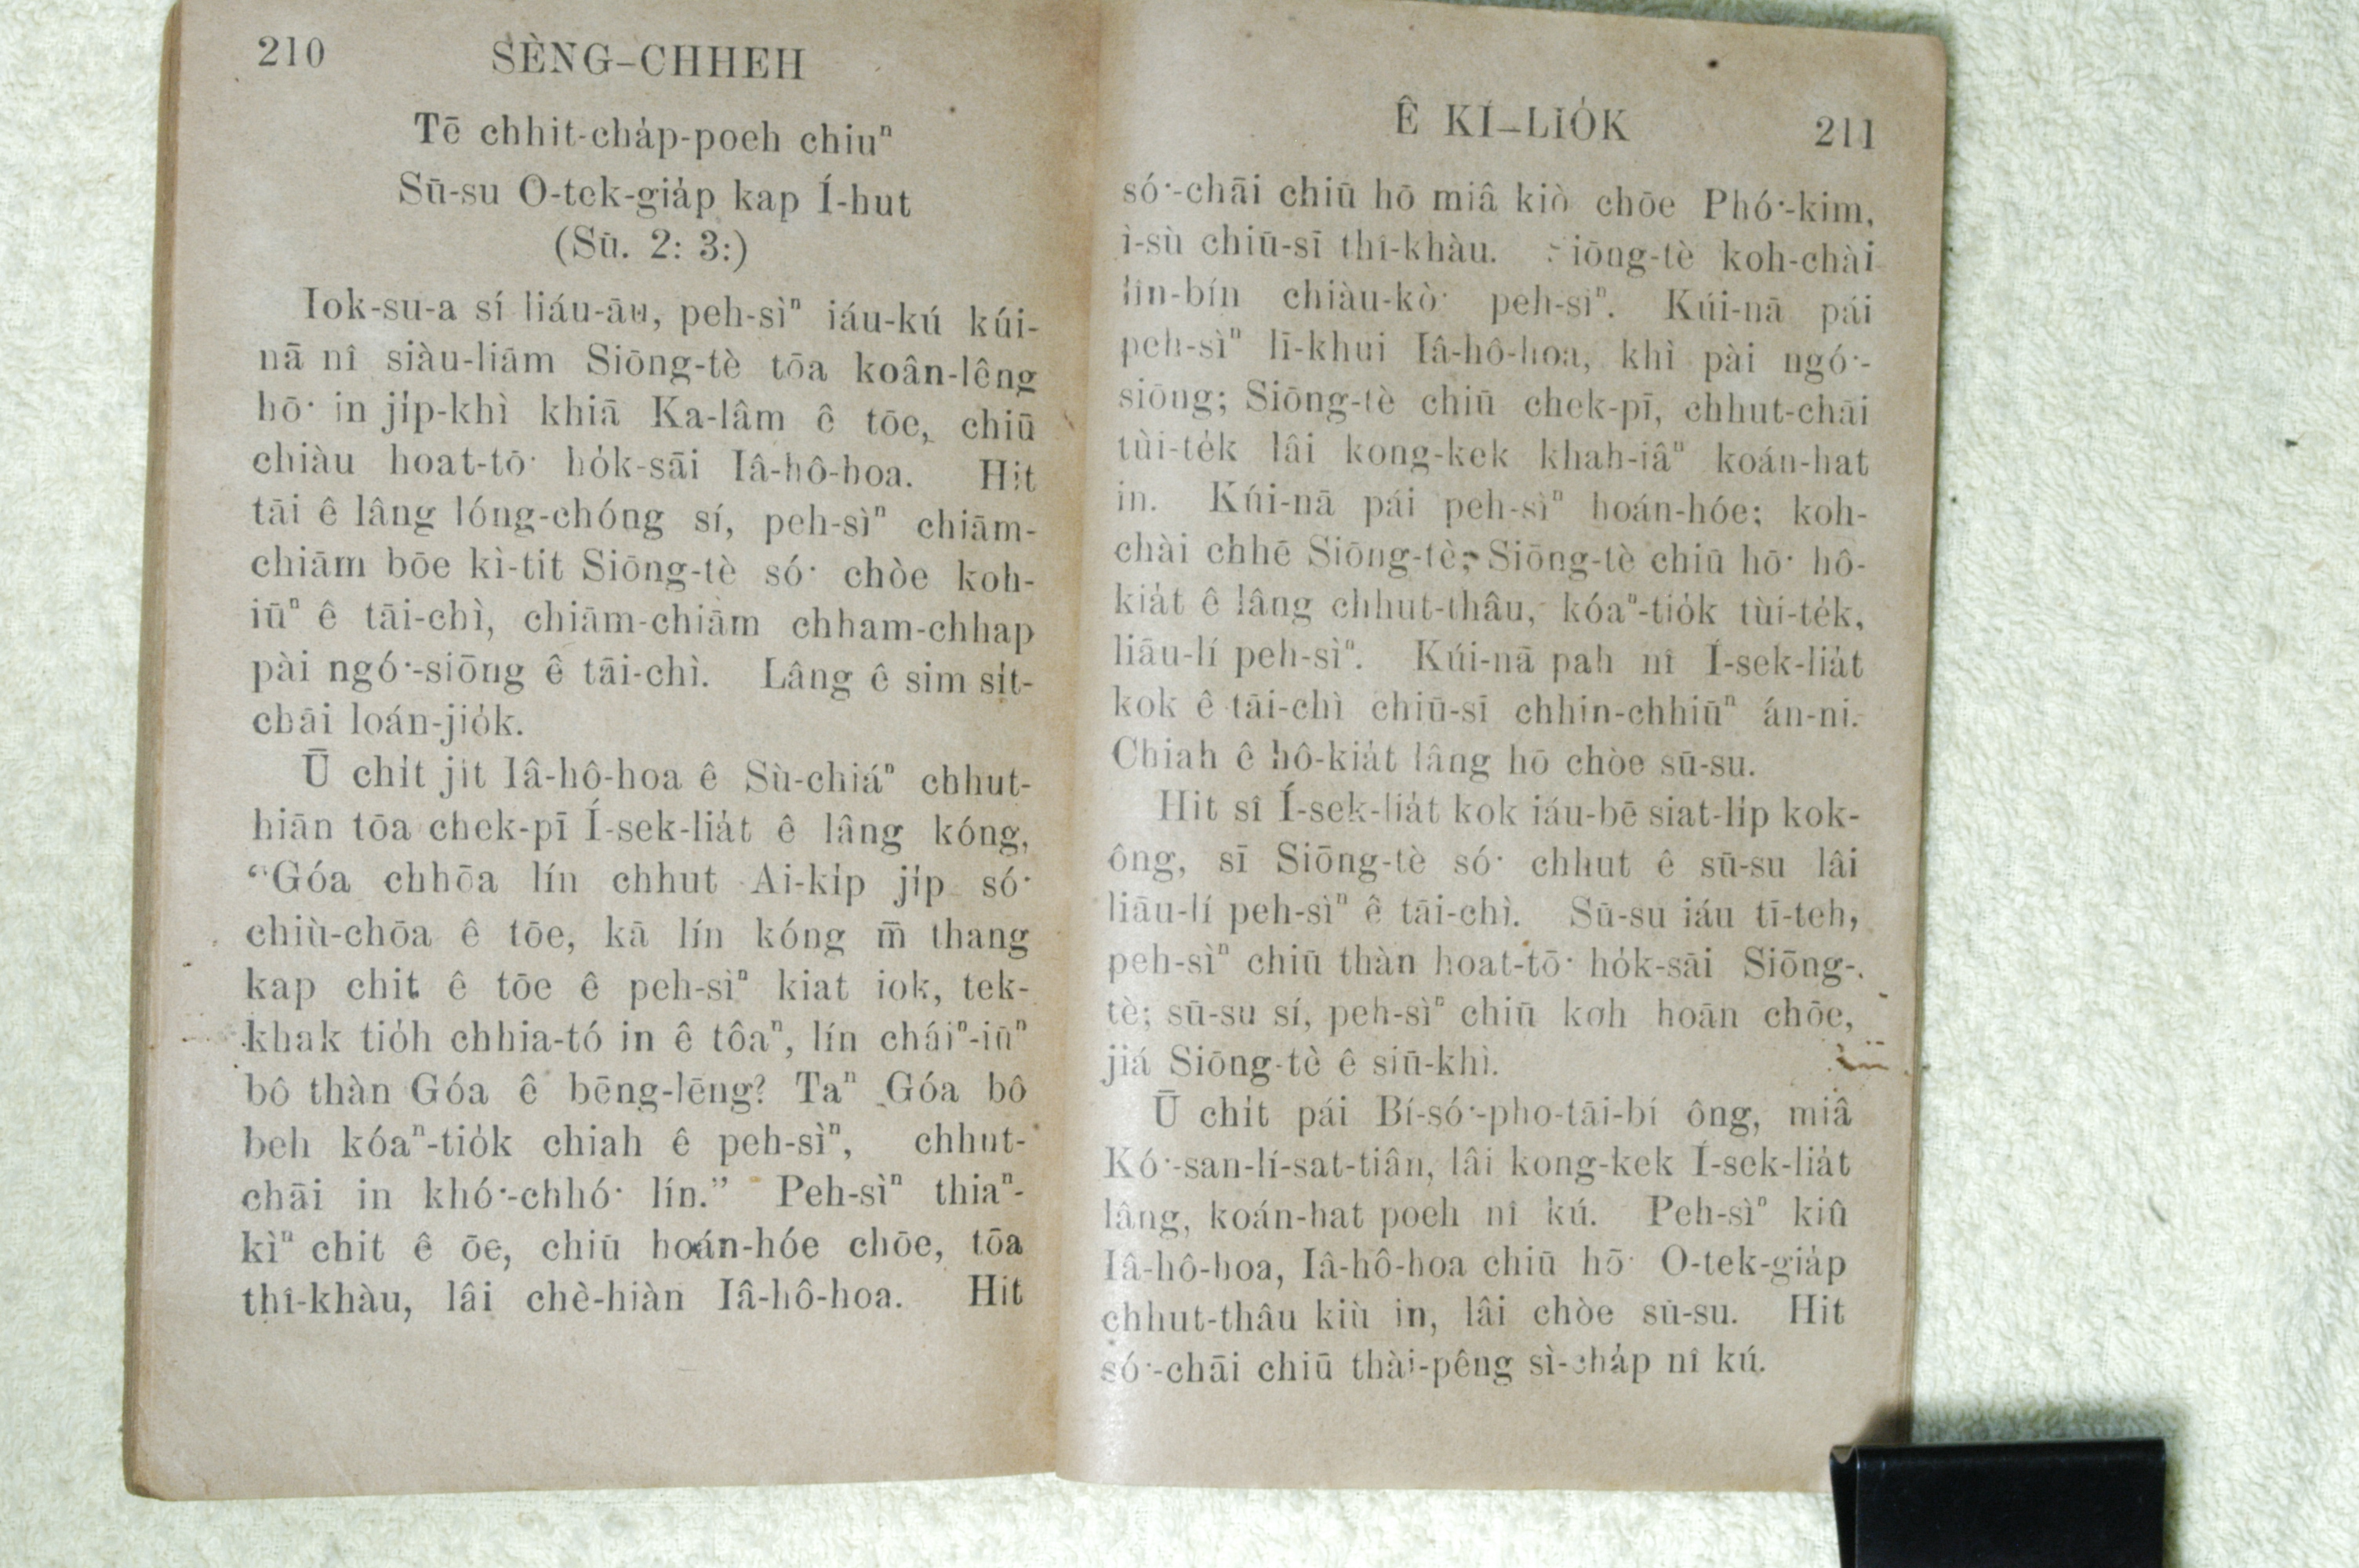 210 SÈNG-CHHEH
Tē chhit-cha̍p-poeh chiuⁿ
Sū-su O-tek-gia̍p kap Í-hut
(Sū. 2: 3:)
Iok-su-a sí liáu-āu, peh-sìⁿ iáu-kú kúi-
nā nî siàu-liām Siōng-tè tōa koân-lêng
hō͘ in ji̍p-khì khiā Ka-lâm ê tōe, chiū
chiàu hoat-tō͘ ho̍k-sāi Iâ-hô-hoa. Hit
tāi ê lâng lóng-chóng sí, peh-sìⁿ chiām-
chiām bōe kì-tit Siōng-tè só͘ chòe koh-
iūⁿ ê tāi-chì, chiām-chiām chham-chhap
pài ngó͘-siōng ê tāi-chì. Lâng ê sim si̍t-
chāi loán-jio̍k.
Ū chi̍t jit Iâ-hô-hoa ê Sù-chiáⁿ chhut-
hiān tōa chek-pī Í-sek-lia̍t ê lâng kóng,
“Góa chhōa lín chhut Ai-ki̍p ji̍p só͘
chiù-chōa ê tōe, kā lín kóng m̄ thang
kap chit ê tōe ê peh-sìⁿ kiat iok, tek-
khak tio̍h chhia-tó in ê tôaⁿ, lín cháiⁿ-iūⁿ
bô thàn Góa ê bēng-lēng? Taⁿ Góa bô
beh kóaⁿ-tio̍k chiah ê peh-sìⁿ, chhut-
chāi in khó͘-chhó͘ lín.” Peh-sìⁿ thiaⁿ-
kìⁿ chit ê ōe, chiū hoán-hóe chōe, tōa
thî-khàu, lâi chè-hiàn Iâ-hô-hoa. Hit
Ê KÍ-LIO̍K 211
só͘-chāi chiū hō miâ kiò chōe Phó͘-kim,
ì-sù chiū-sī thî-khàu. Siōng-tè koh-chài
lîn-bín chiàu-kò͘ peh-sìⁿ. Kúi-nā pái
peh-sìⁿ lī-khui Iâ-hô-hoa, khì pài ngó͘-
siōng; Siōng-tè chiū chek-pī, chhut-chāi
tùi-te̍k lâi kong-kek khah-iâⁿ koán-hat
in. Kúi-nā pái peh-sìⁿ hoán-hóe; koh-
chài chhē Siōng-tè; Siōng-tè chiū hō͘ hô-
kia̍t ê lâng chhut-thâu, kóaⁿ-tio̍k tùi-te̍k,
liāu-lí peh-sìⁿ. Kúi-nā pah nî Í-sek-lia̍t
kok ê tāi-chì chiū-sī chhin-chhiūⁿ án-ni.
Chiah ê hô-kia̍t lâng hō chòe sū-su.
Hit sî Í-sek-lia̍t kok iáu-bē siat-li̍p kok-
ông, sī Siōng-tè só͘ chhut ê sū-su lâi
liāu-lí peh-sìⁿ ê tāi-chì. Sū-su iáu tī-teh,
peh-sìⁿ chiū thàn hoat-tō͘ ho̍k-sāi Siōng-
tè; sū-su sí, peh-sìⁿ chiū koh hoān chōe,
jiá Siōng-tè ê siū-khì.
Ū chi̍t pái Bí-só͘-pho-tāi-bí ông, miâ
Kó͘-san-lí-sat-tiân, lâi kong-kek Í-sek-lia̍t
lâng, koán-hat poeh nî kú. Peh-sìⁿ kiû
Iâ-hô-hoa, Iâ-hô-hoa chiū hō͘ O-tek-gia̍p
chhut-thâu kiù in, lâi chòe sū-su. Hit
só͘-chāi chiū thài-pêng sì-cha̍p nî kú.